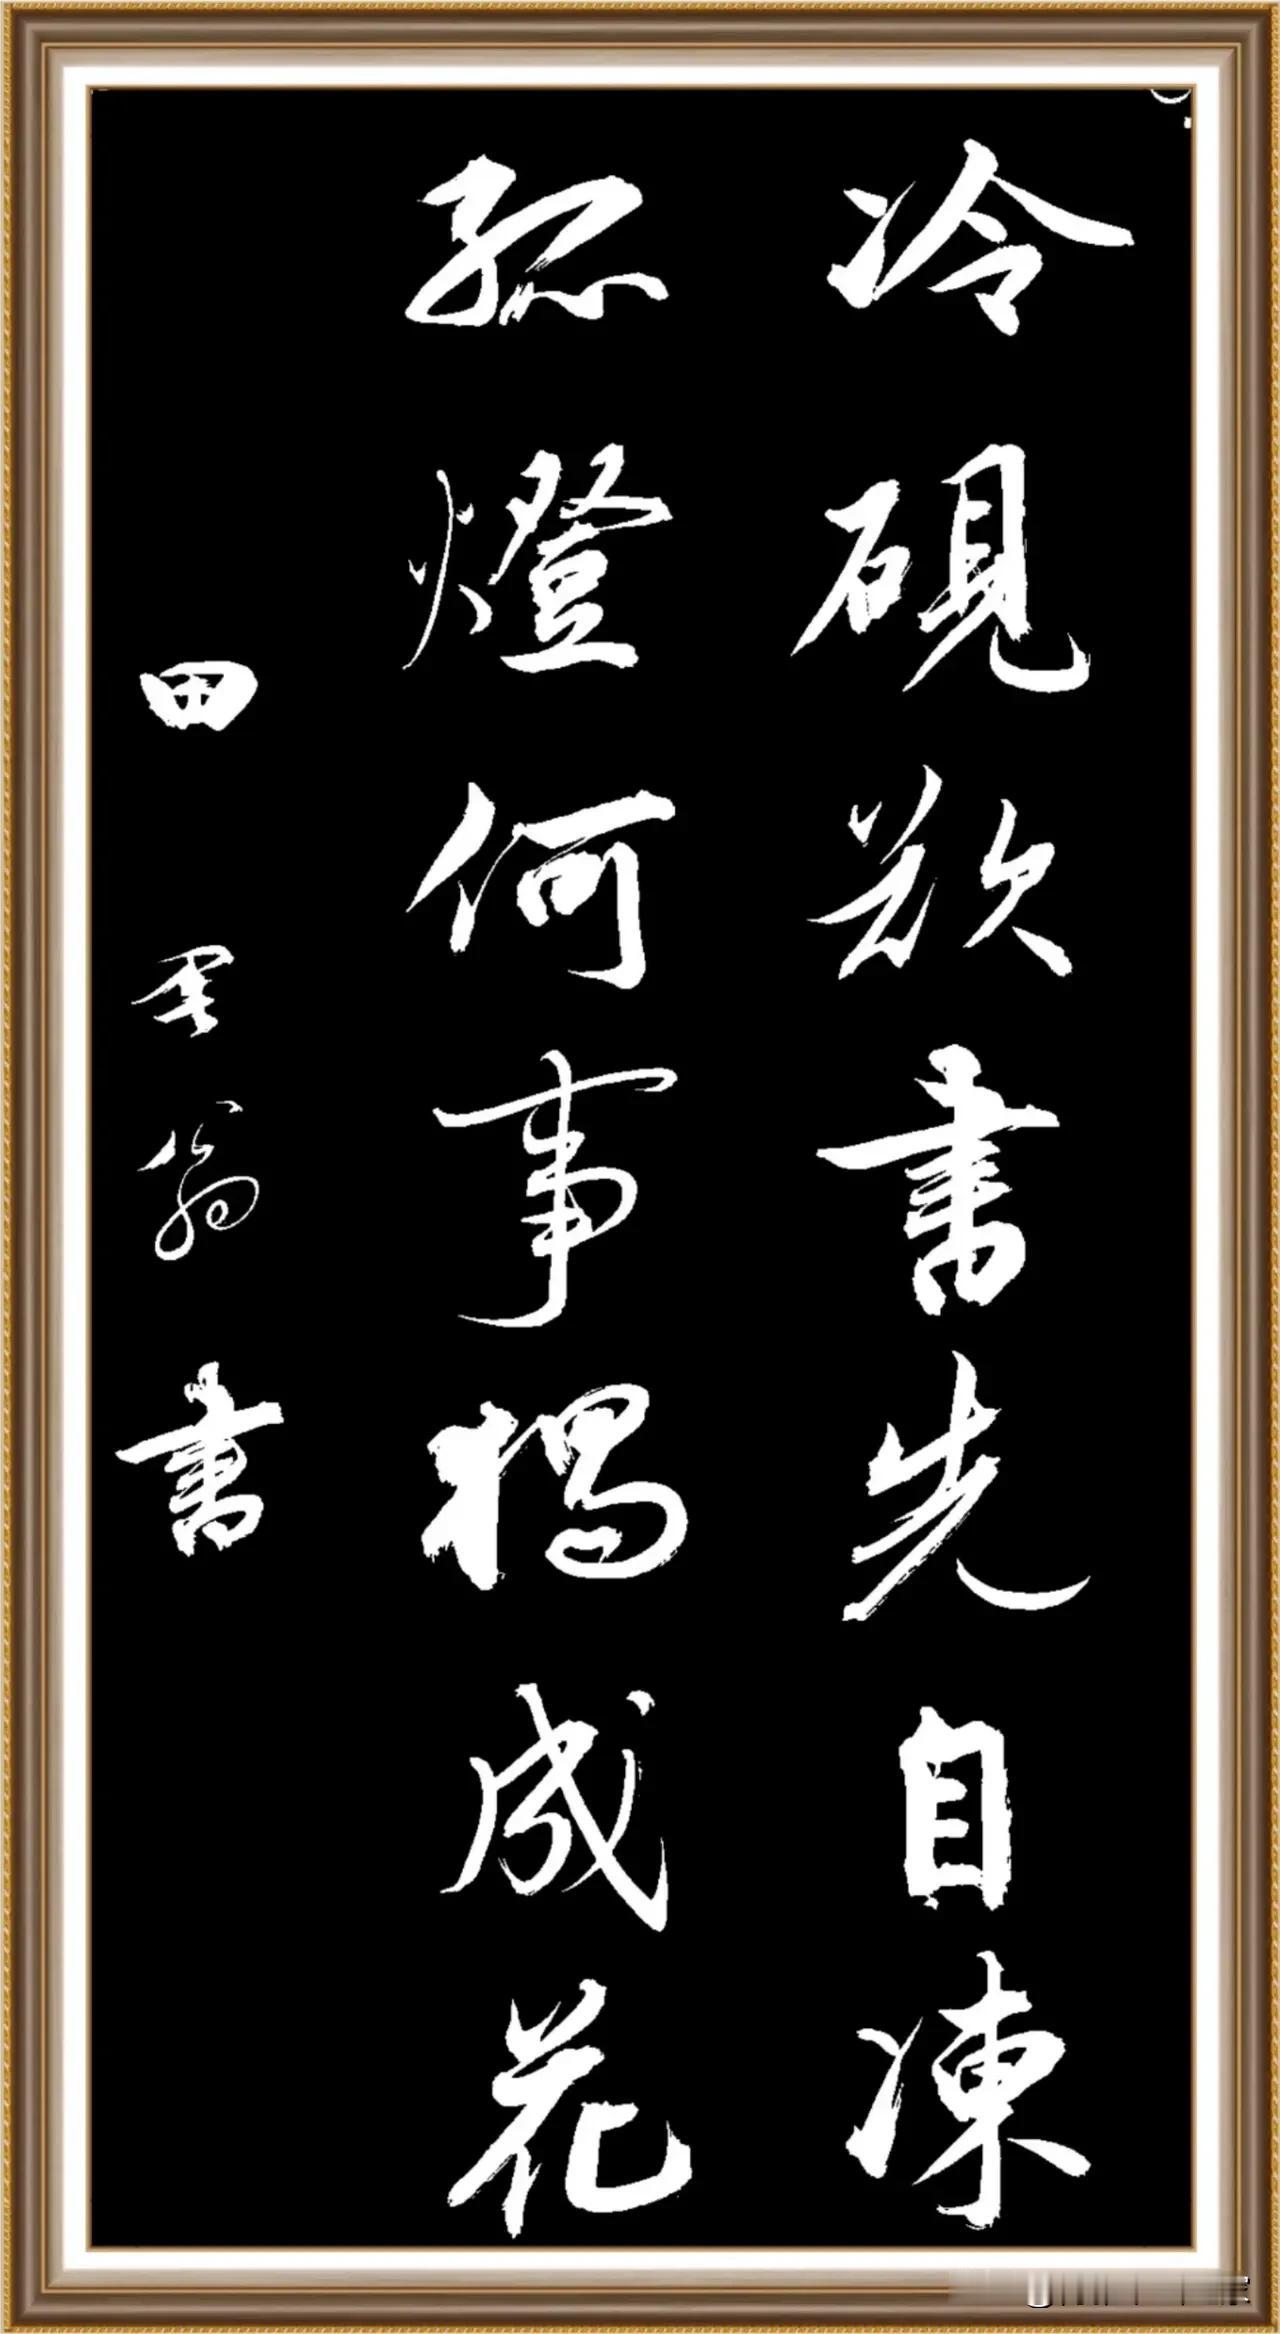 冷硯欲書先自凍
孤燈何事獨成花
田 翁書